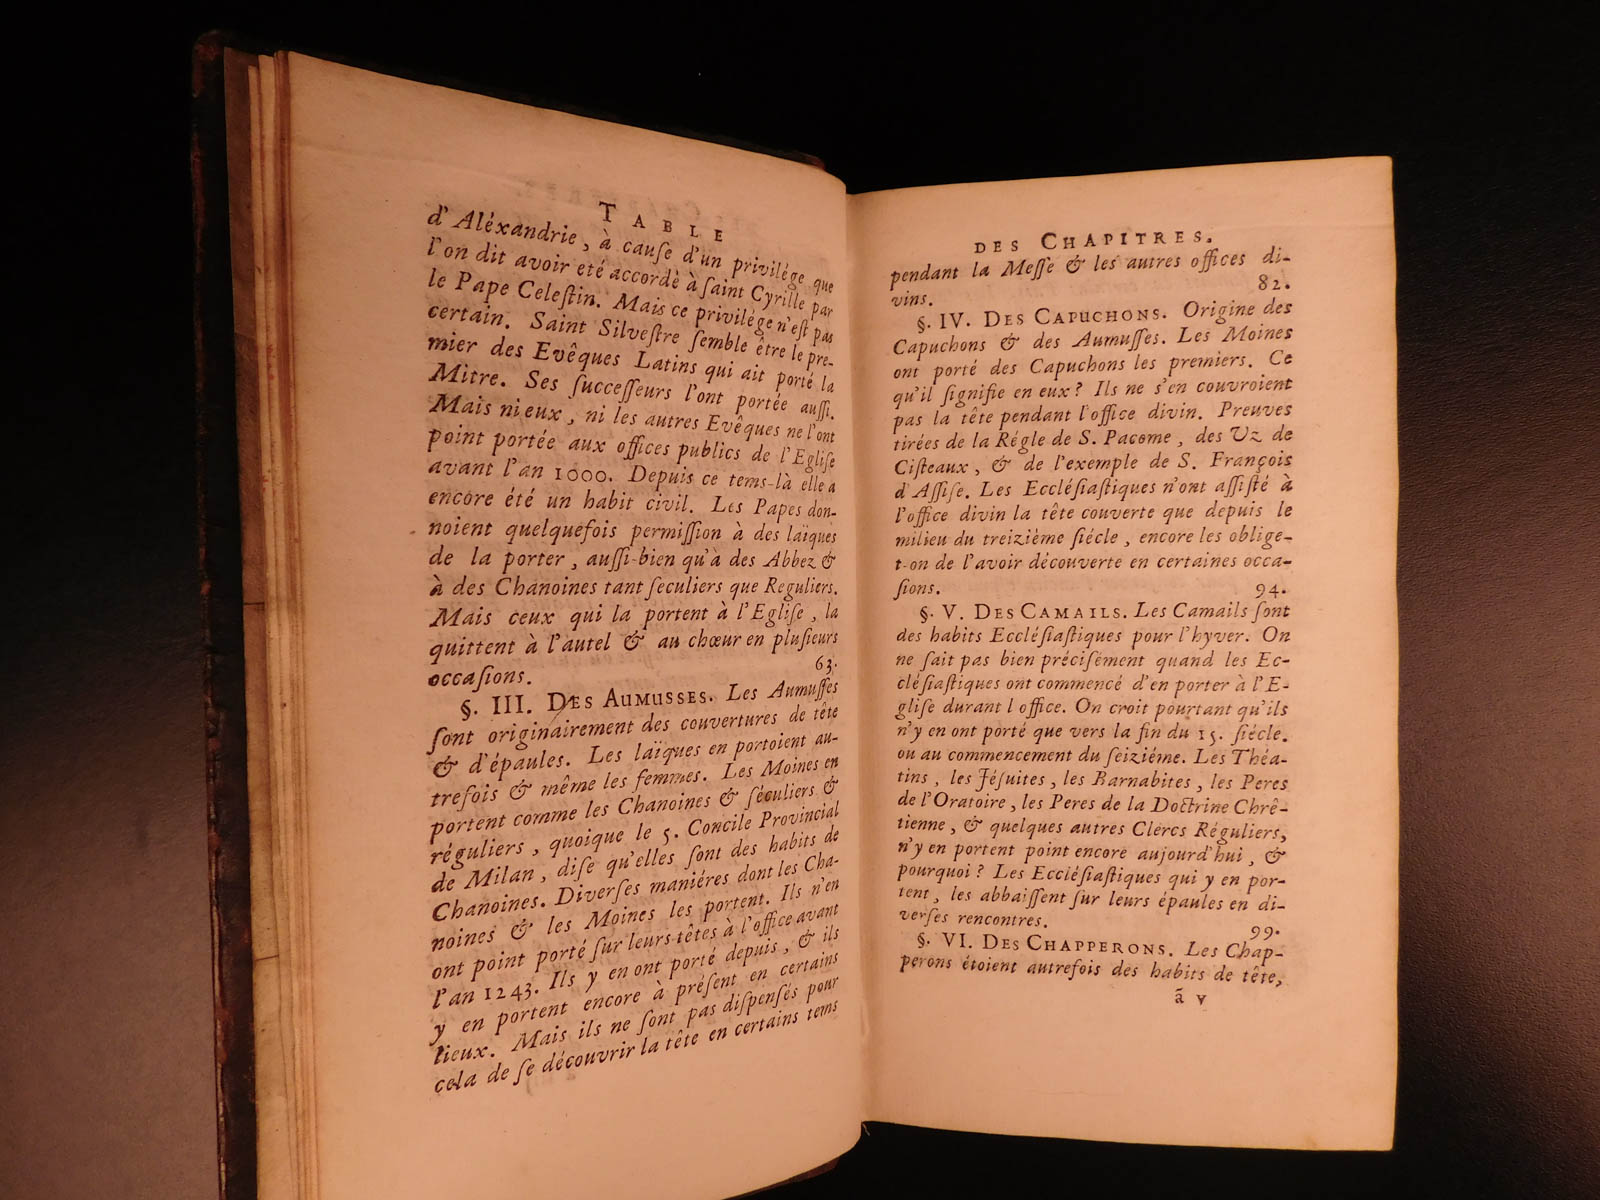 TABLE
d'Aléxandrie, à cause d'un privilége que
l'on dit avoir eté accordè à saint Cyrille par
le Pape Celestin. Mais ce privilége n'est pas
certain. Saint Silvestre semble être le pre-
mier des Evêques Latins qui ait porté la
Mitre. Ses successeurs l'ont portée aussi.
Mais ni eux, ni les autres Evêques ne l'ont
point portée aux offices publics de l'Eglise
avant l'an 1000. Depuis ce tems-là elle a
encore été un habit civil. Les Papes don-
noient quelquefois permission à des laïques
de la porter, aussi-bien qu'à des Abbez &
à des Chanoines tant seculiers que Reguliers.
Mais ceux qui la portent à l'Eglise, la
quittent à l'autel & au chœur en plusieurs
occasions. 63.
§. III. DES AUMUSSES. Les Aumusses
sont originairement des couvertures de tête
& d'épaules. Les laïques en portoient au-
trefois & même les femmes. Les Moines en
portent comme les Chanoines & séculiers &
réguliers, quoique le 5. Concile Provincial
de Milan, dise qu'elles sont des habits de
Chanoines. Diverses maniéres dont les Cha-
noines & les Moines les portent. Ils n'en
ont point porté sur leurs-têtes à l'office avant
l'an 1243. Ils y en ont porté depuis, & ils
y en portent encore à présent en certains
lieux. Mais ils ne sont pas dispensés pour
cela de se découvrir la tête en certains tems
DES CHAPITRES.
pendant la Messe & les autres offices di-
vins. 82.
§. IV. DES CAPUCHONS. Origine des
Capuchons & des Aumusses. Les Moines
ont porté des Capuchons les premiers. Ce
qu'il signifie en eux? Ils ne s'en couvroient
pas la tête pendant l'office divin. Preuves
tirées de la Régle de S. Pacome, des Uz de
Cisteaux, & de l'exemple de S. François
d'Assise. Les Ecclésiastiques n'ont assisté à
l'office divin la tête couverte que depuis le
milieu du treiziéme siécle, encore les oblige-
t-on de l'avoir découverte en certaines occa-
sions. 94.
§. V. DES CAMAILS. Les Camails sont
des habits Ecclésiastiques pour l'hyver. On
ne sait pas bien précisément quand les Ec-
clésiastiques ont commencé d'en porter à l'E-
glise durant l office. On croit pourtant qu'ils
n'y en ont porté que vers la fin du 15. siécle.
ou au commencement du seiziéme. Les Théa-
tins, les Jésuites, les Barnabites, les Peres
de l'Oratoire, les Peres de la Doctrine Chrê-
tienne, & quelques autres Clercs Réguliers,
n'y en portent point encore aujourd'hui, &
pourquoi? Les Ecclésiastiques qui y en por-
tent, les abbaissent sur leurs épaules en di-
verses rencontres. 99.
§. VI. DES CHAPPERONS. Les Chap-
perons étoient autrefois des habits de tête,
ã v